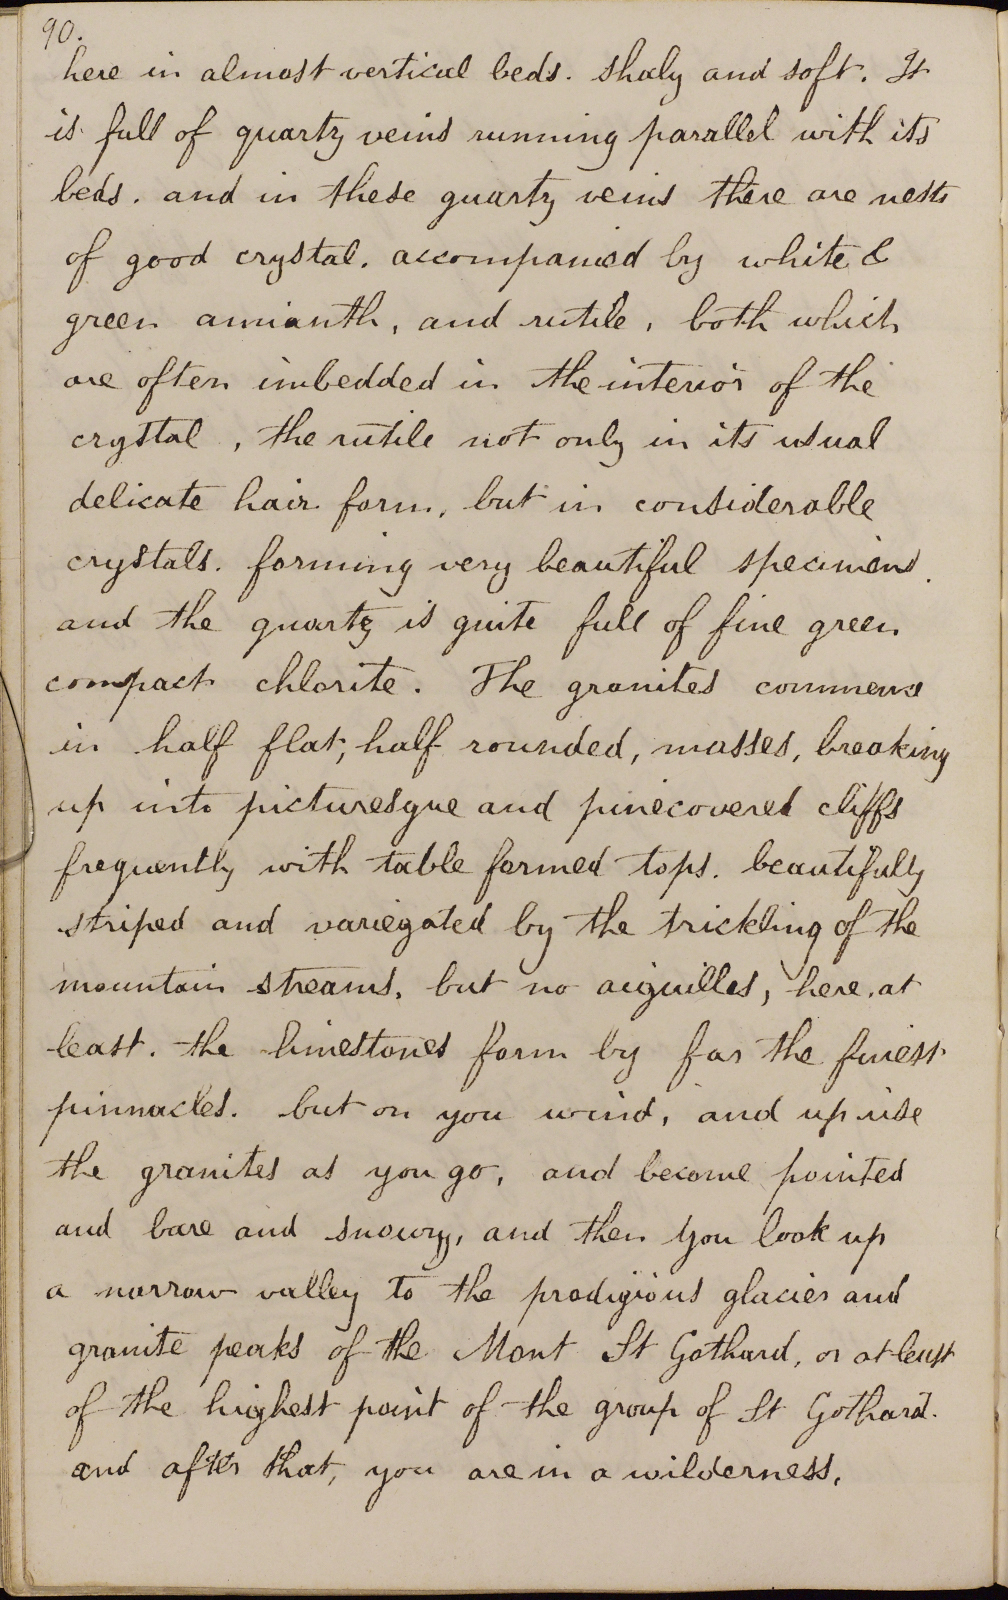 90.
here in almost vertical beds. shaly and soft. It
is full of quartz veins running parallel with its
beds. and in these quartz veins there are nests
of good crystal. accompanied by white &
green amianth, and rutile, both which
are often imbedded in the interior of the
crystal, the rutile not only in its usual
delicate hair form, but in considerable
crystals. forming very beautiful specimens.
and the quartz is quite full of fine green
compact chlorite. The granites commence
in half flat, half rounded, masses, breaking
up into picturesque and pinecovered cliffs
frequently with table formed tops. beautifully
striped and variegated by the trickling of the
mountain streams, but no aiguilles, here, at
least. the limestones form by far the finest
pinnacles. but on you wind, and up rise
the granites as you go, and become pointed
and bare and snowy, and then you look up
a narrow valley to the prodigious glacier and
granite peaks of the Mont St Gothard, or at least
of the highest point of the group of St Gothard.
and after that, you are in a wilderness,